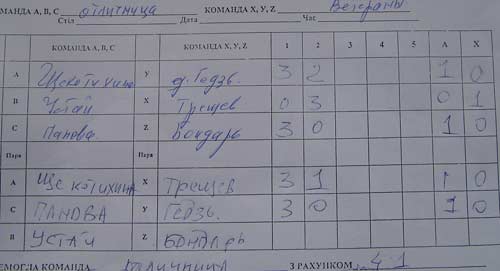 МАНДА А, В, С отличница КОМАНДА X, У, Z Ветераны
Стіл Дата Час
КОМАНДА А, В, С КОМАНДА X, У, Z 1 2 3 4 5 А X
А Щекотихина У д. Гедзь. 3 2 1 0
В Устай X Трещев 0 3 0 1
С Панова Z Бондарь 3 0 1 0
Пара Пара
А Щекотихина X Трещев 3 1 1 0
С ПАНОВА У Гедзь. 3 0 1 0
В УСТАЙ Z БОНДАРЬ
ЕМОГЛА КОМАНДА отличница З РАХУНКОМ 4:1